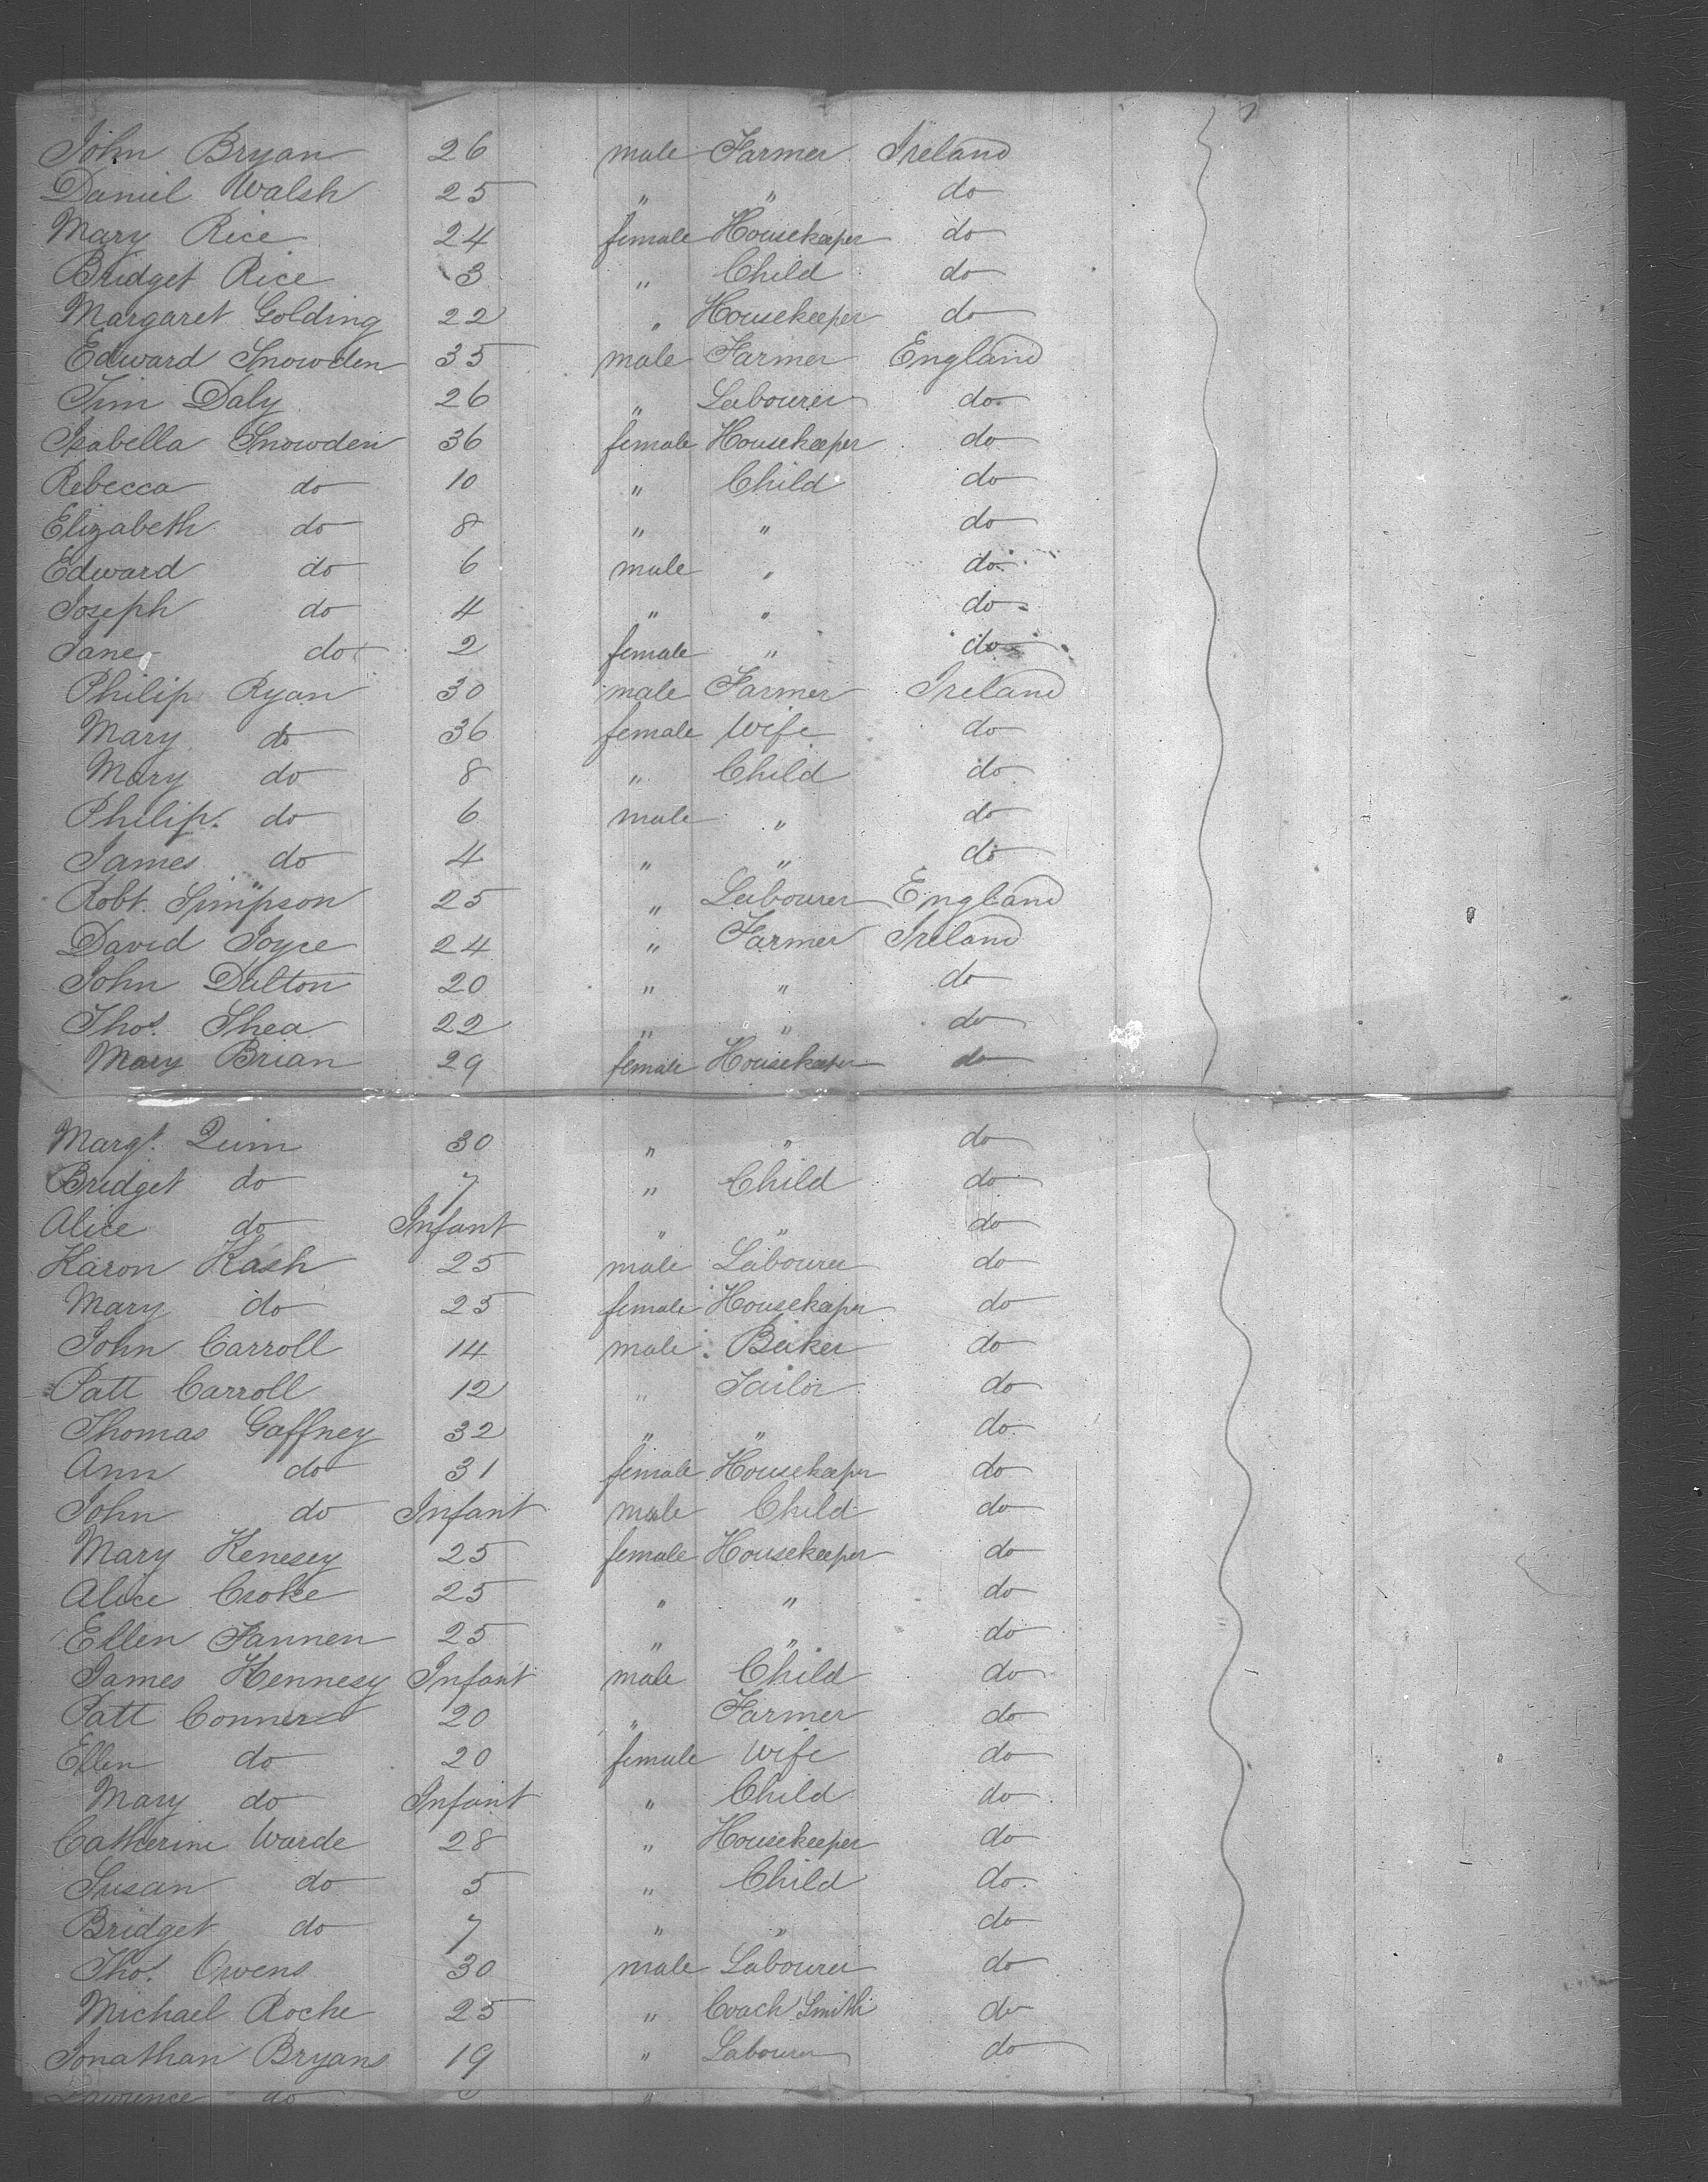 John Bryan 26 male Farmer Ireland
Daniel Walsh 25 " " do
Mary Rice 24 female Housekeeper do
Bridget Rice 3 " Child do
Margaret Golding 22 " Housekeeper do
Edward Snowden 35 male Farmer England
Tim Daly 26 " Labourer do
Isabella Snowden 36 female Housekeeper do
Rebecca do 10 " Child do
Elizabeth do 8 " " do
Edward do 6 male " do
Joseph do 4 " " do
Jane do 2 female " do
Philip Ryan 30 male Farmer Ireland
Mary do 36 female Wife do
Mary do 8 " Child do
Philip do 6 male " do
James do 4 " " do
Robt. Simpson 25 " Labourer England
David Joyce 24 " Farmer Ireland
John Dalton 20 " " do
Thos. Shea 22 " " do
Mary Brian 29 female Housekeeper do
Margt. Quin 30 " " do
Bridget do 7 " Child do
Alice do Infant " " do
Karon Kash 25 male Labourer do
Mary do 25 female Housekeeper do
John Carroll 14 male Baker do
Patt Carroll 12 " Tailor do
Thomas Gaffney 32 " " do
Ann do 31 female Housekeeper do
John do Infant male Child do
Mary Kenesey 25 female Housekeeper do
Alice Croke 25 " " do
Ellen Fannen 25 " " do
James Hennesy Infant male Child do
Patt Conner 20 " Farmer do
Ellen do 20 female Wife do
Mary do Infant " Child do
Catherine Warde 28 " Housekeeper do
Susan do 5 " Child do
Bridget do 7 " " do
Thos. Owens 30 male Labourer do
Michael Roche 25 " Coach Smith do
Jonathan Bryans 19 " Labourer do
Lawrence do "